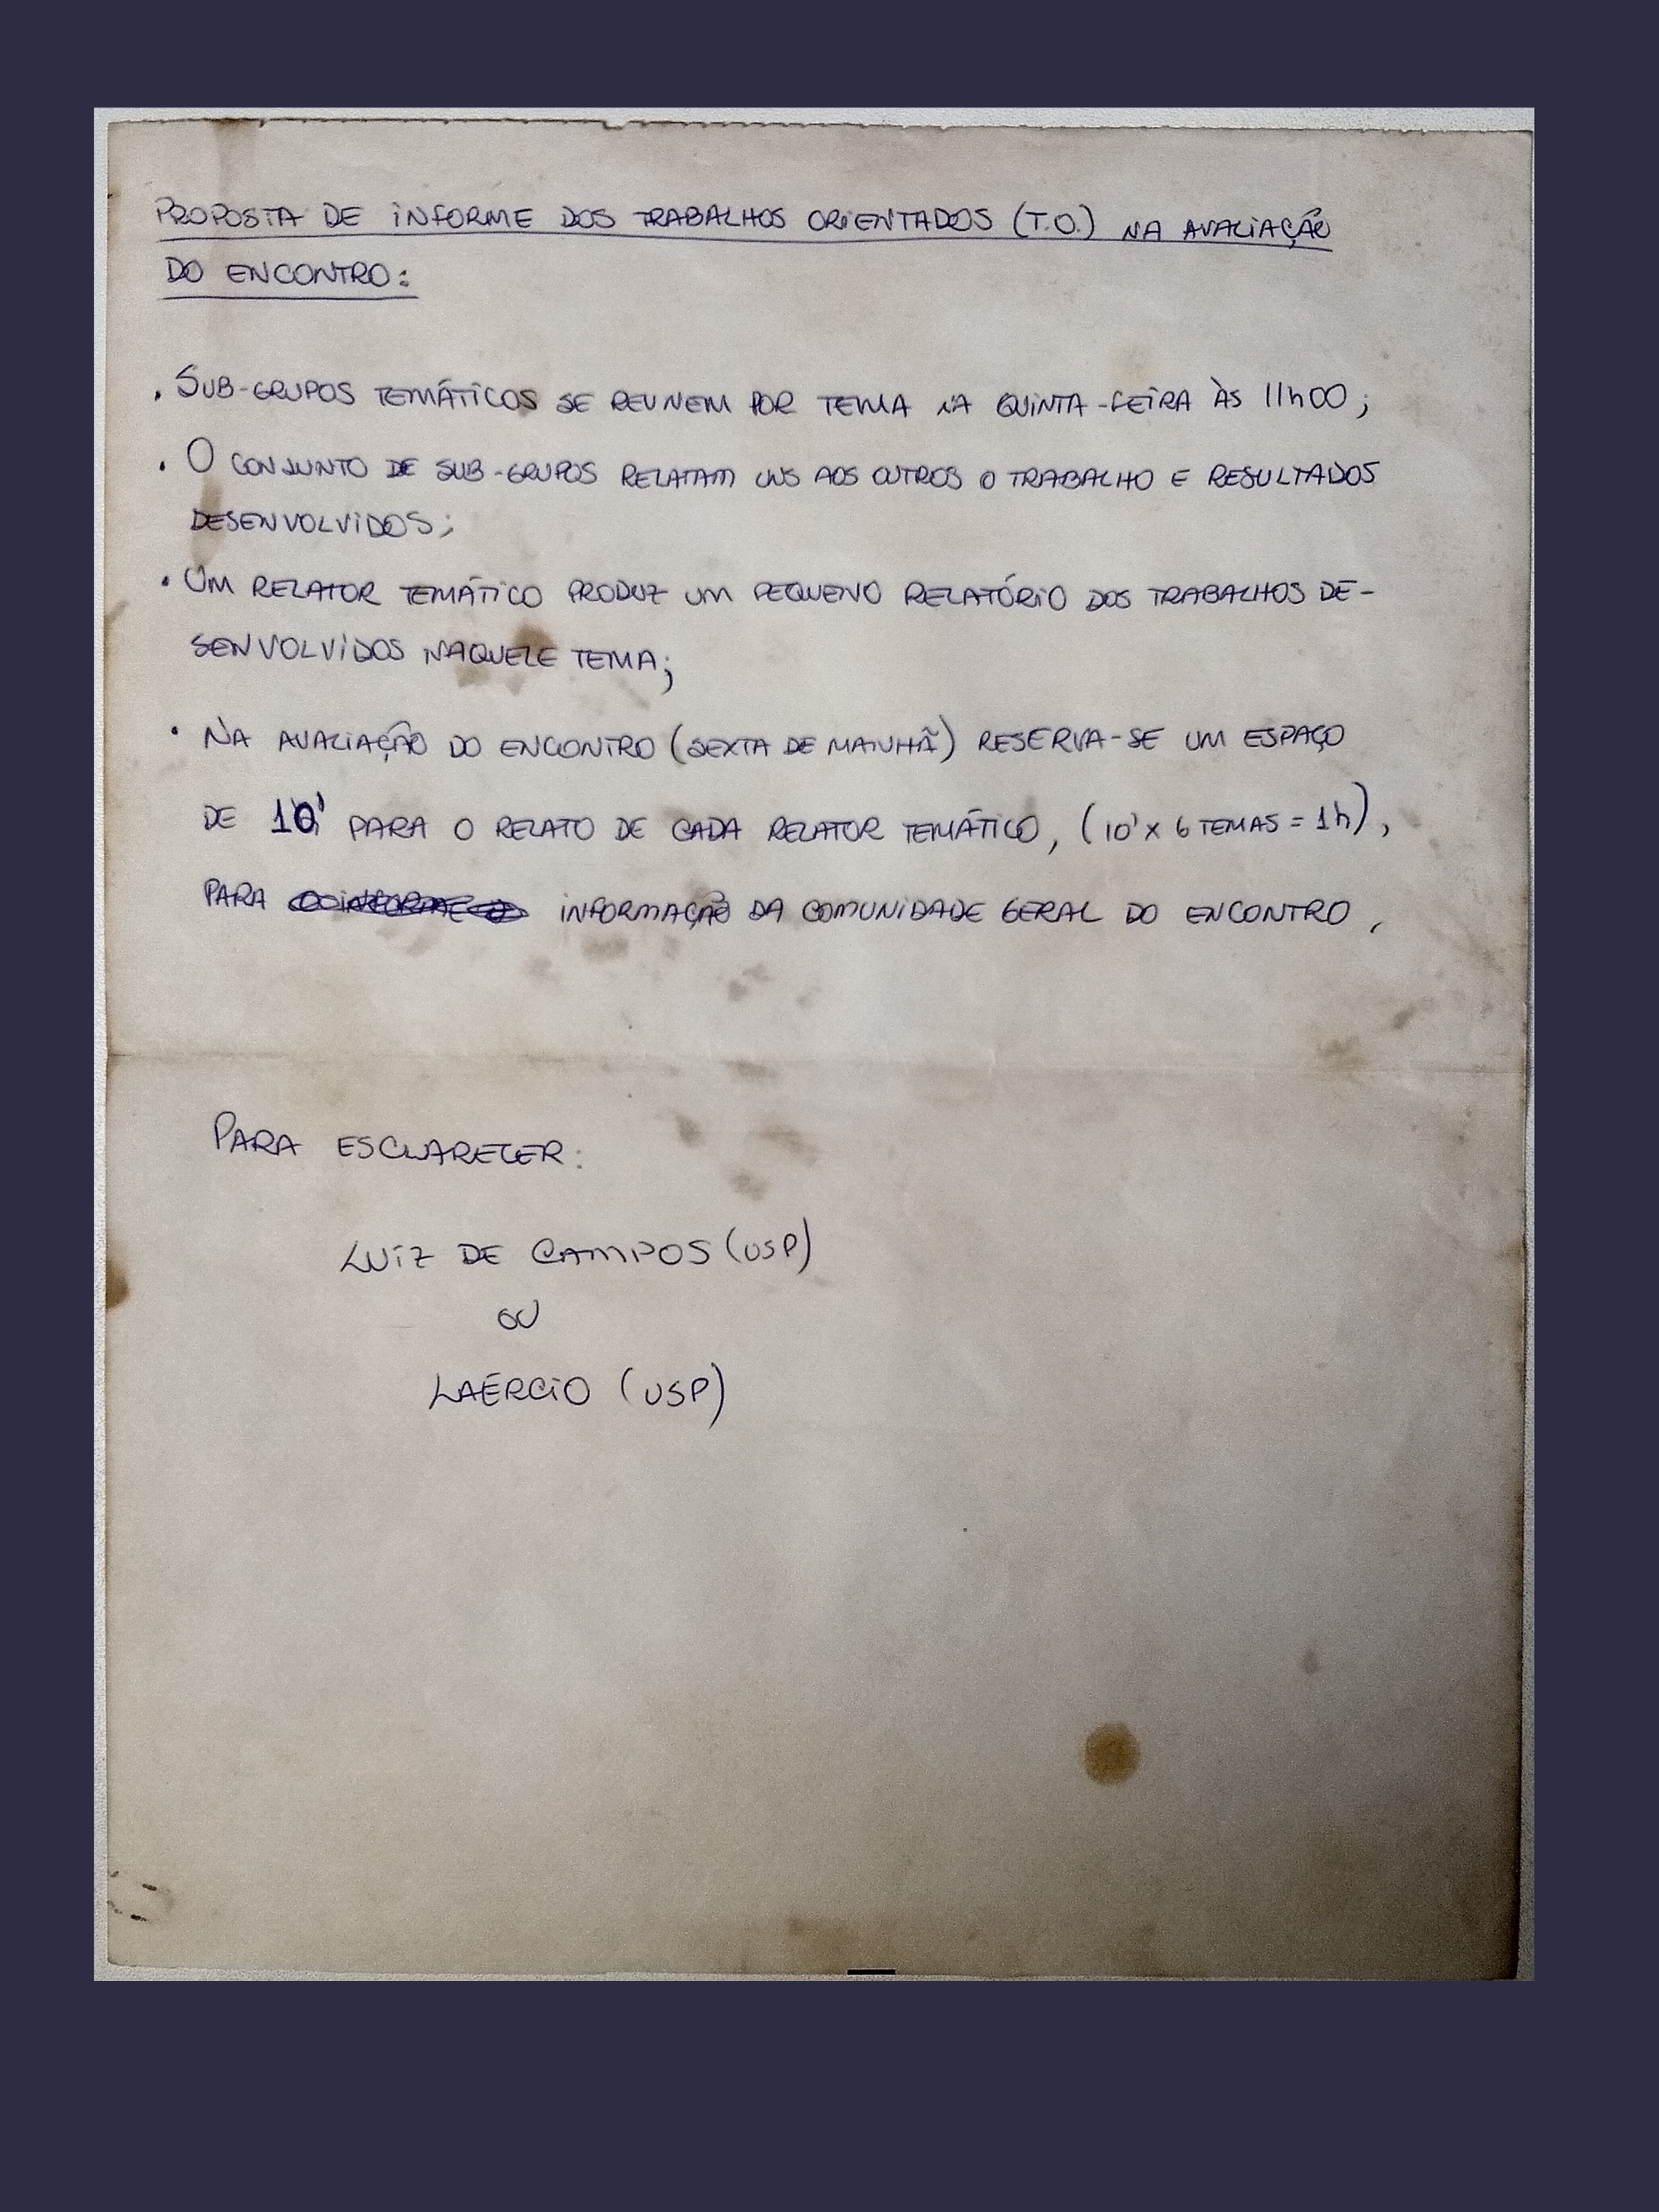 PROPOSTA DE INFORME DOS TRABALHOS ORIENTADOS (T.O.) NA AVALIAÇÃO
DO ENCONTRO:
. SUB-GRUPOS TEMÁTICOS SE REUNEM POR TEMA NA QUINTA-FEIRA ÀS 11h00;
. O CONJUNTO DE SUB-GRUPOS RELATAM UNS AOS OUTROS O TRABALHO E RESULTADOS
DESENVOLVIDOS;
. UM RELATOR TEMÁTICO PRODUZ UM PEQUENO RELATÓRIO DOS TRABALHOS DE-
SENVOLVIDOS NAQUELE TEMA;
. NA AVALIAÇÃO DO ENCONTRO (SEXTA DE MANHÃ) RESERVA-SE UM ESPAÇO
DE 10' PARA O RELATO DE CADA RELATOR TEMÁTICO, (10' x 6 TEMAS = 1h),
PARA INFORMAÇÃO DA COMUNIDADE GERAL DO ENCONTRO.
PARA ESCLARECER:
LUIZ DE CAMPOS (USP)
OU
LAÉRCIO (USP)